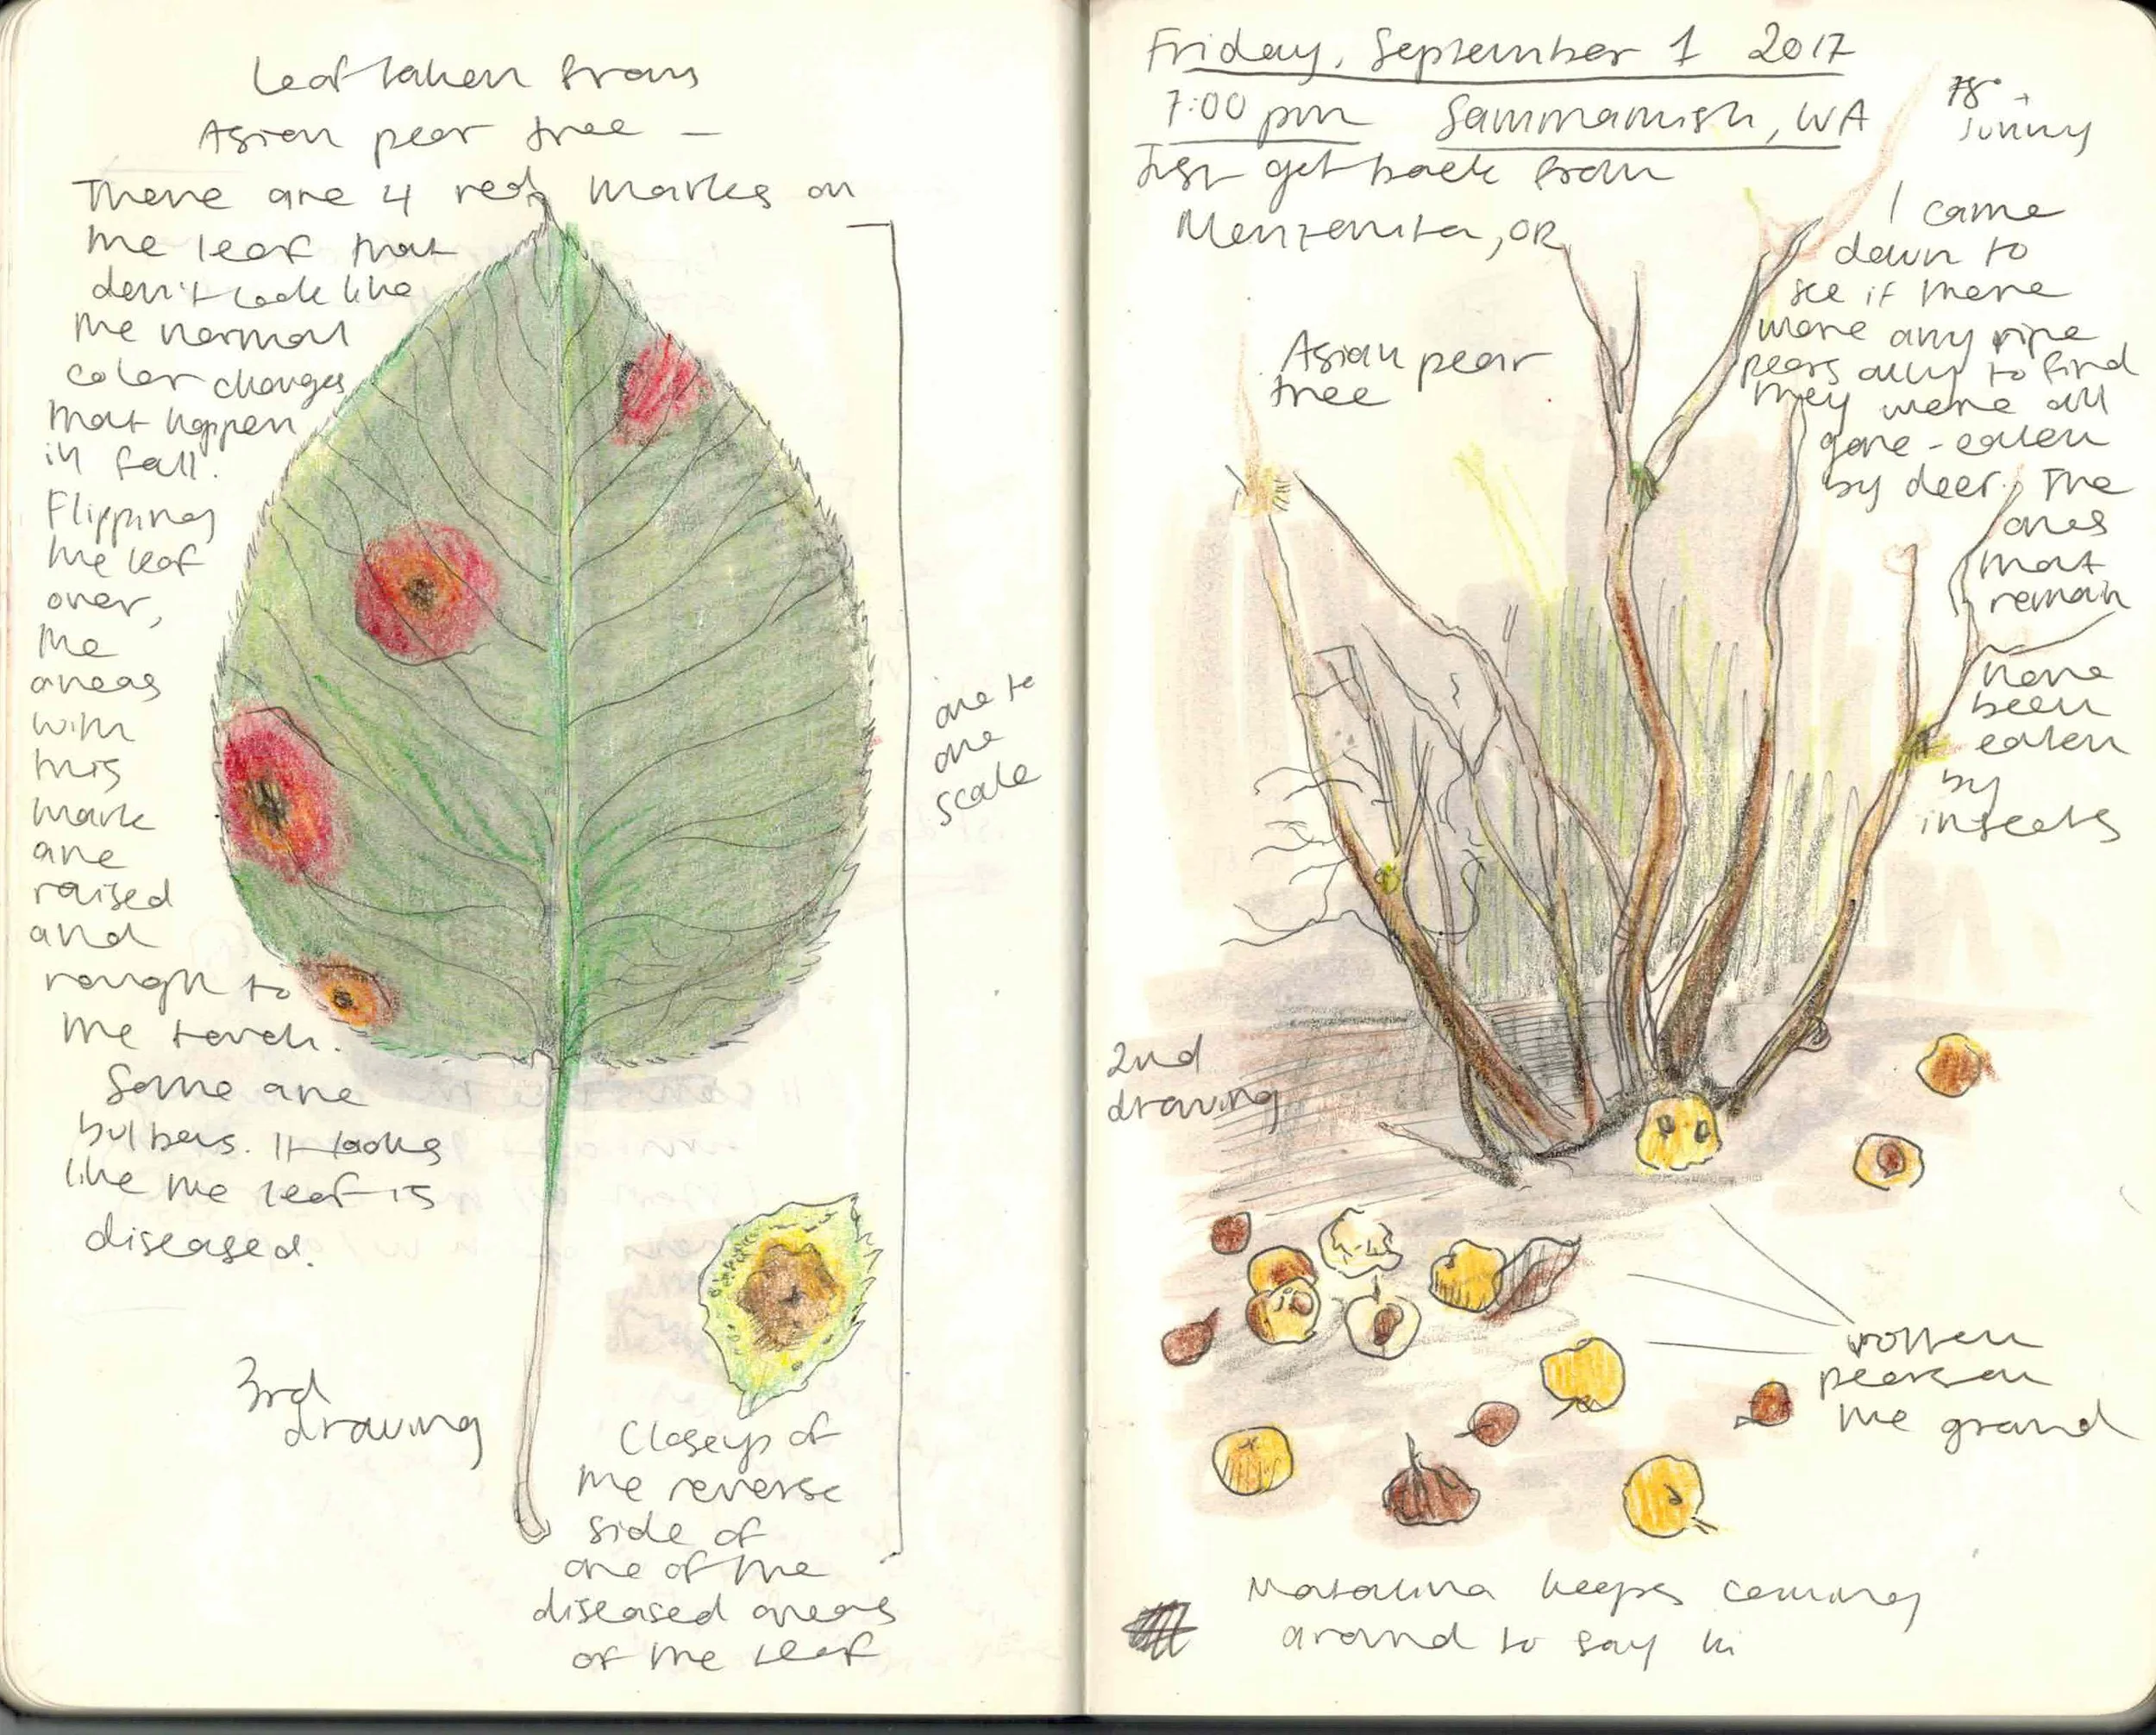 Leaf taken from
Asian pear tree —
There are 4 red marks on
the leaf that
don't look like
the normal
color changes
that happen
in fall.
Flipping
the leaf
over,
the
areas
with
this
mark
are
raised
and
rough to
the touch.
Some are
bulbous. It looks
like the leaf is
diseased.
one to
one
scale
3rd
drawing
Closeup of
the reverse
side of
one of the
diseased areas
of the leaf
Friday, September 1 2017
7:00 pm Sammamish, WA
78° +
sunny
Just got back from
Manzanita, OR
Asian pear
tree
I came
down to
see if there
were any ripe
pears only to find
they were all
gone - eaten
by deer. The
ones
that
remain
have
been
eaten
by
insects
2nd
drawing
rotten
pears on
the ground
Natalina keeps coming
around to say hi